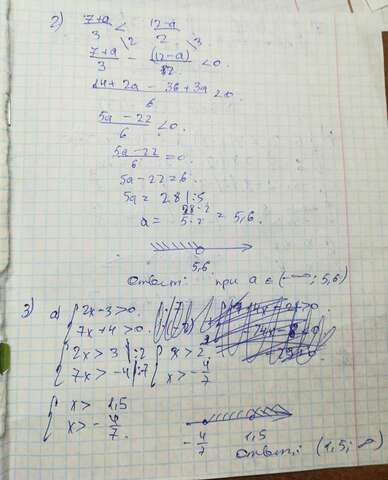 2) (7+a)/3 < (12-a)/2
(7+a)/3 - (12-a)/2 < 0.
(14 + 2a - 36 + 3a)/6 < 0
(5a - 22)/6 < 0.
(5a - 22)/6 = 0.
5a - 22 = 6.
5a = 28 |:5
a = (28·2)/(5·2) = 5,6.
5,6.
Ответ: при a ∈ (-∞; 5,6)
3) а) { 2x-3>0. 7x+4>0.
{ 2x > 3 |:2 7x > -4 |:7 { x > 2 x > -4/7
{ x > 1,5 x > -4/7.
-4/7 1,5
Ответ: (1,5; ∞)